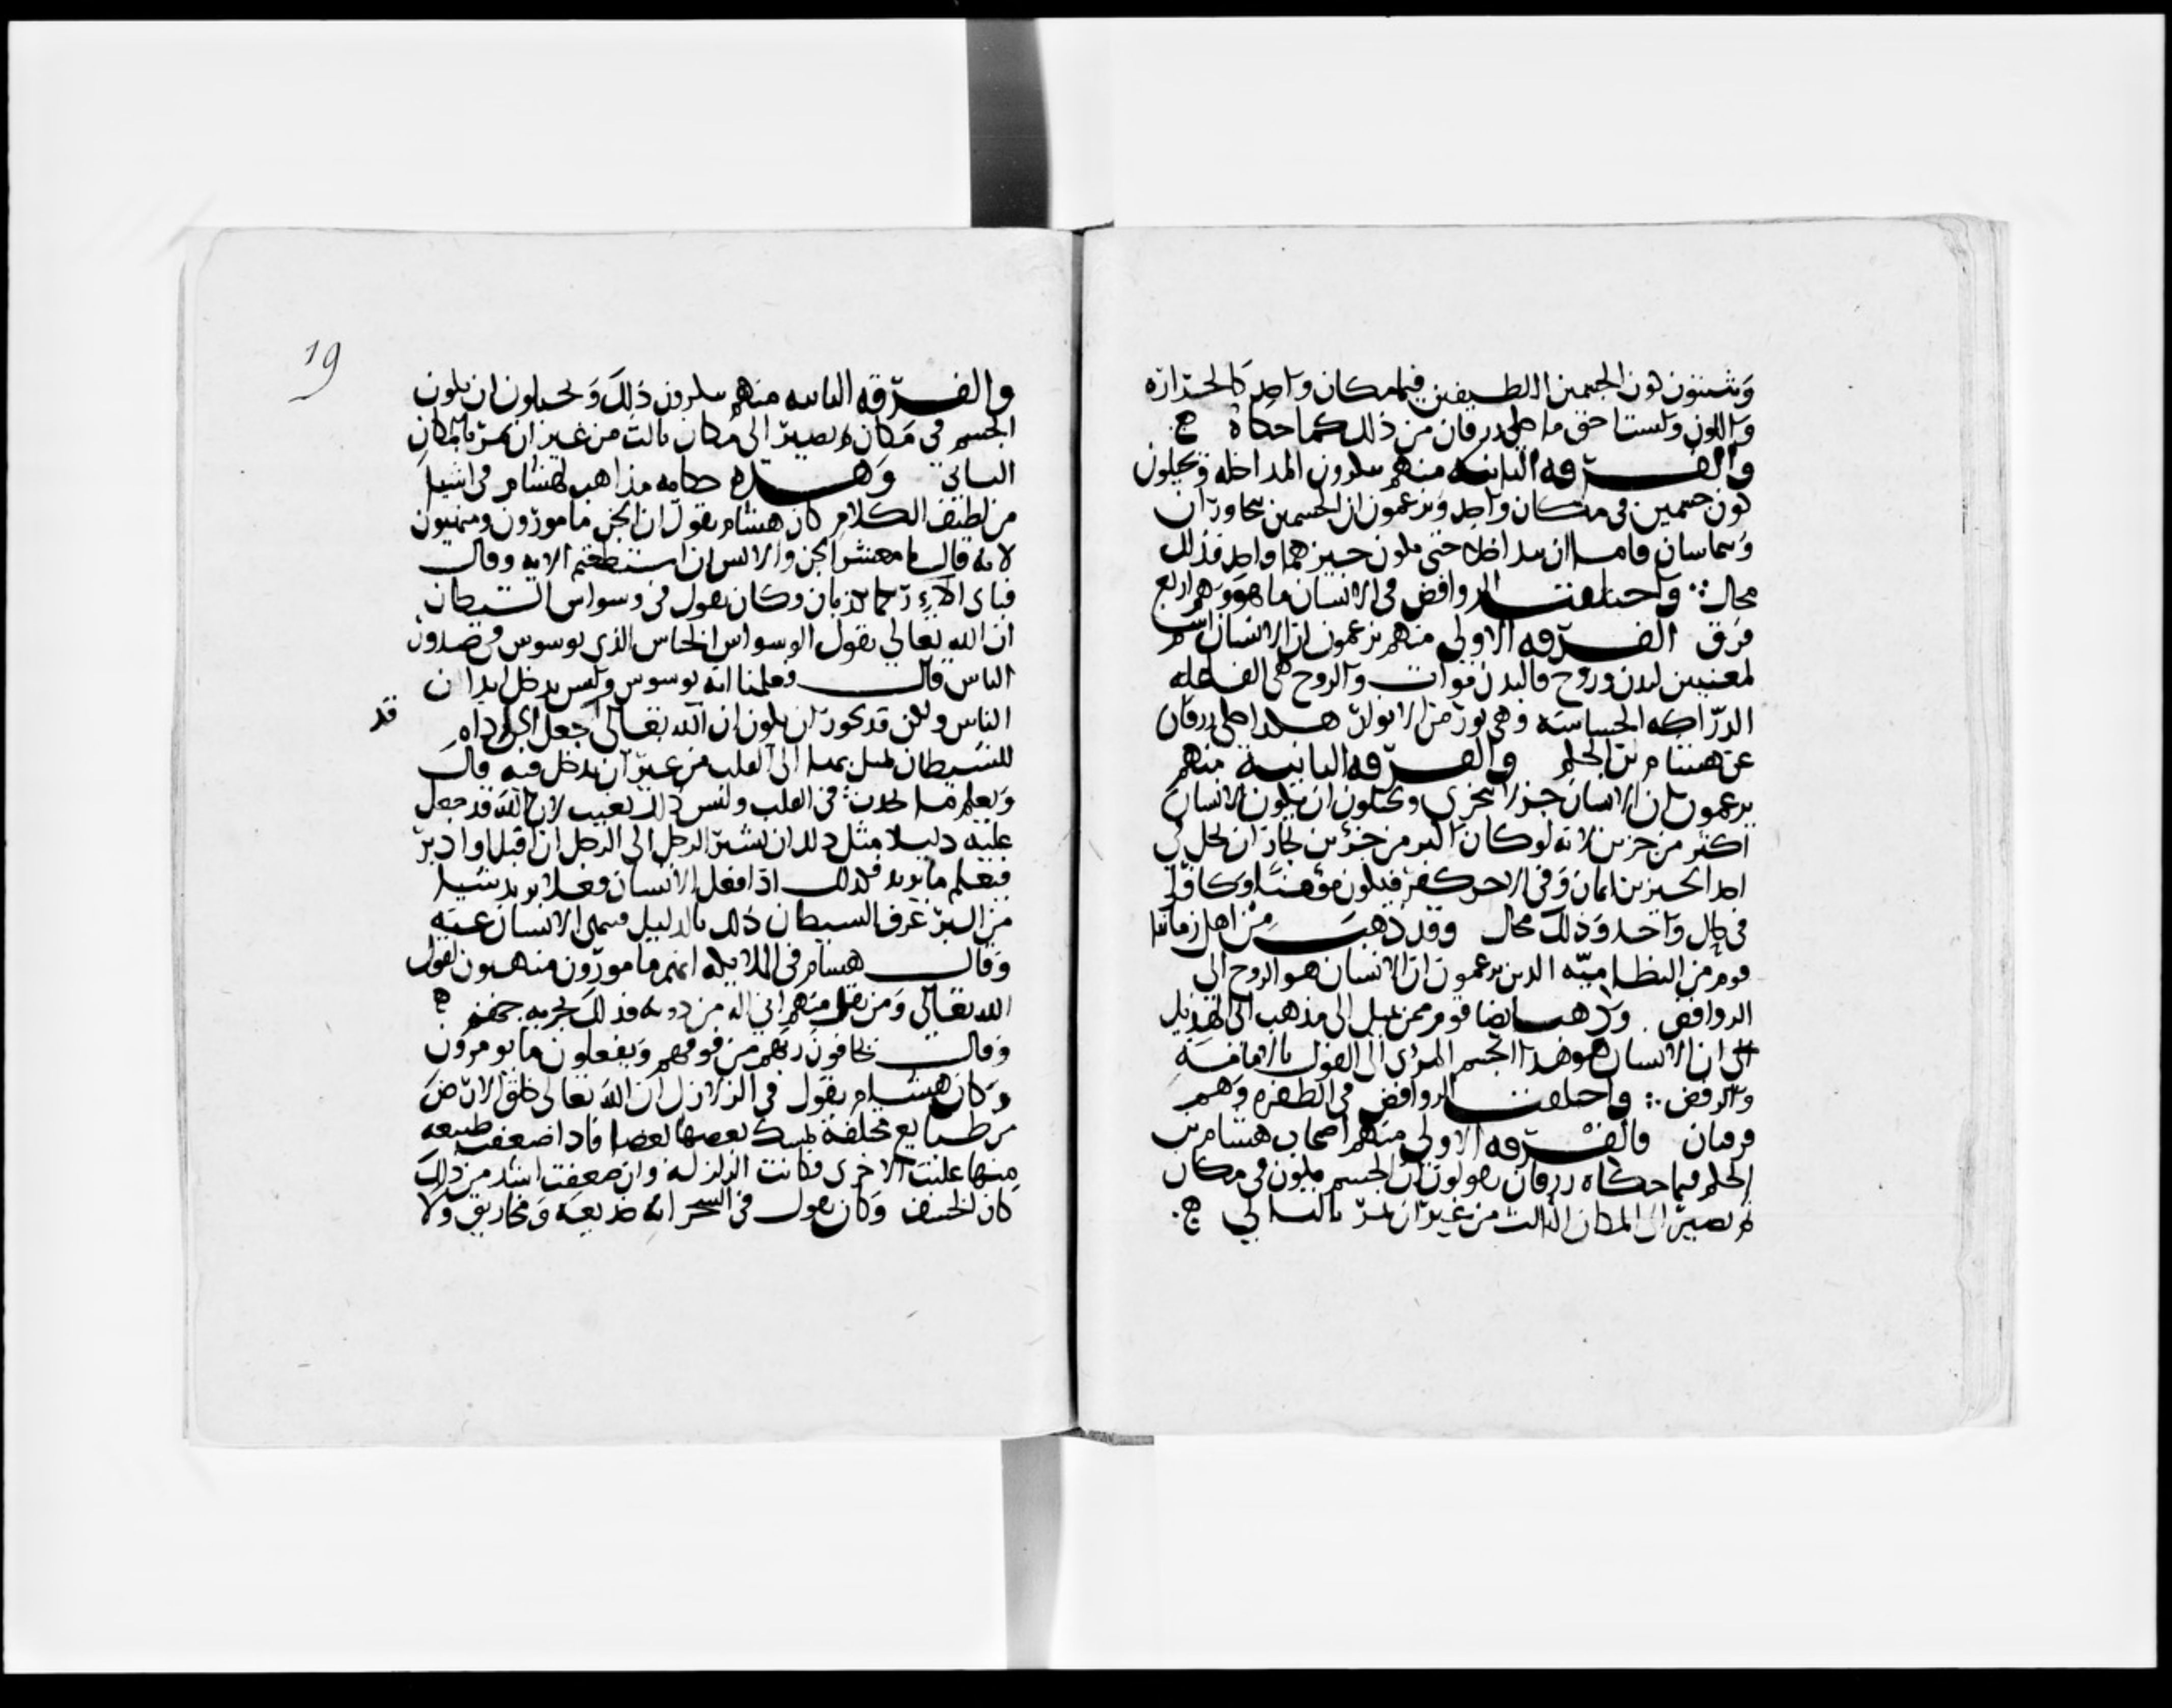 ويثبتون كون الجسمين اللطيفين في مكان واحد كالحرارة
واللون ولست احق ما حكى زرقان من ذلك كما حكاه
والفرقه الثانيه منهم ينكرون المداخله ويحيلون
كون جسمين في مكان واحد ويزعمون ان الجسمين يتجاوران
ويتماسان فاما ان يتداخلا حتى يكون حيزهما واحد فذلك
محال واختلفت الروافض في الانسان ما هو وهم اربع
فرق الفرقه الاولى منهم يزعمون ان الانسان اسم
لمعنيين لبدن وروح فالبدن موات والروح هي الفاعله
الدراكه الحساسه وهي نور من الانوار هكذا حكى زرقان
عن هشام بن الحكم والفرقه الثانية منهم
يزعمون ان الانسان جزء لا يتجزى ويحيلون ان يكون الانسان
اكثر من جزء لانه لو كان اكثر من جزئين لجاز ان يحل في
احد الجزين ايمان وفي الاخر كفر فيكون مؤمنا وكافرا
في حال واحد وذلك محال وقد ذهب من اهل زماننا
قوم من النظاميه الذين يزعمون ان الانسان هو الروح الى
الروافض وذهب ايضا قوم ممن يميل الى مذهب ابى الهذيل
الى ان الانسان هو هذا الجسم المرئى الى القول بالامامة
والرفض واختلفت الروافض في الطفره وهم
فرقتان فالفرقه الاولى منهم اصحاب هشام بن
الحكم فيما حكاه زرقان يقولون ان الجسم يكون في مكان
ثم يصير الى المكان الثالث من غير ان يمر بالثاني
19
والفرقه الثانيه منهم ينكرون ذلك ويحيلون ان يكون
الجسم في مكان ثم يصير الى مكان ثالث من غير ان يمر بالمكان
الثاني وهذه حكايه مذاهب لهشام في اشيا
من لطيف الكلام كان هشام يقول ان الجن مامورون ومنهيون
لانه قال يا معشر الجن والانس ان استطعتم الايه وقال
فباى الاء ربكما تكذبان وكان يقول في وسواس الشيطان
ان الله تعالى يقول الوسواس الخناس الذي يوسوس في صدور
الناس قال فعلمنا انه يوسوس وليس يدخل ابدان
الناس ولكن قد يجوز ان يكون ان الله تعالى جعل الجو اداه
قد
للشيطان يصل بها الى القلب من غير ان يدخل فيه قال
ويعلم ما يحدث في القلب وليس ذلك بغيب لان الله قد جعل
عليه دليلا مثل ذلك ان يشير الرجل الى الرجل ان اقبل او ادبر
فيعلم ما يريد فكذلك اذا فعل الانسان فعلا يريد شيئا
من البر عرف الشيطان ذلك بالدليل فينهى الانسان عنه
وقال هشام في الملايكه انهم مامورون منهيون لقول
الله تعالى ومن يقل منهم اني اله من دونه فذلك نجزيه جهنم
وقال يخافون ربهم من فوقهم ويفعلون ما يومرون
وكان هشام يقول في الزلازل ان الله تعالى خلق الارض
من طبايع مختلفة يمسك بعضها بعضا فاذا ضعفت طبيعه
منها غلبت الاخرى فكانت الزلزلة وان ضعفت اشد من ذلك
كان الخسف وكان يقول في السحر انه خديعة ومخاريق ولا